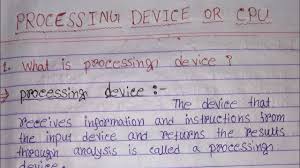 PROCESSING DEVICE OR CPU
1. What is processing device ?
→ processing device :-
The device that
receives information and instructions from
the input device and returns the results
through analysis is called a processing
device.